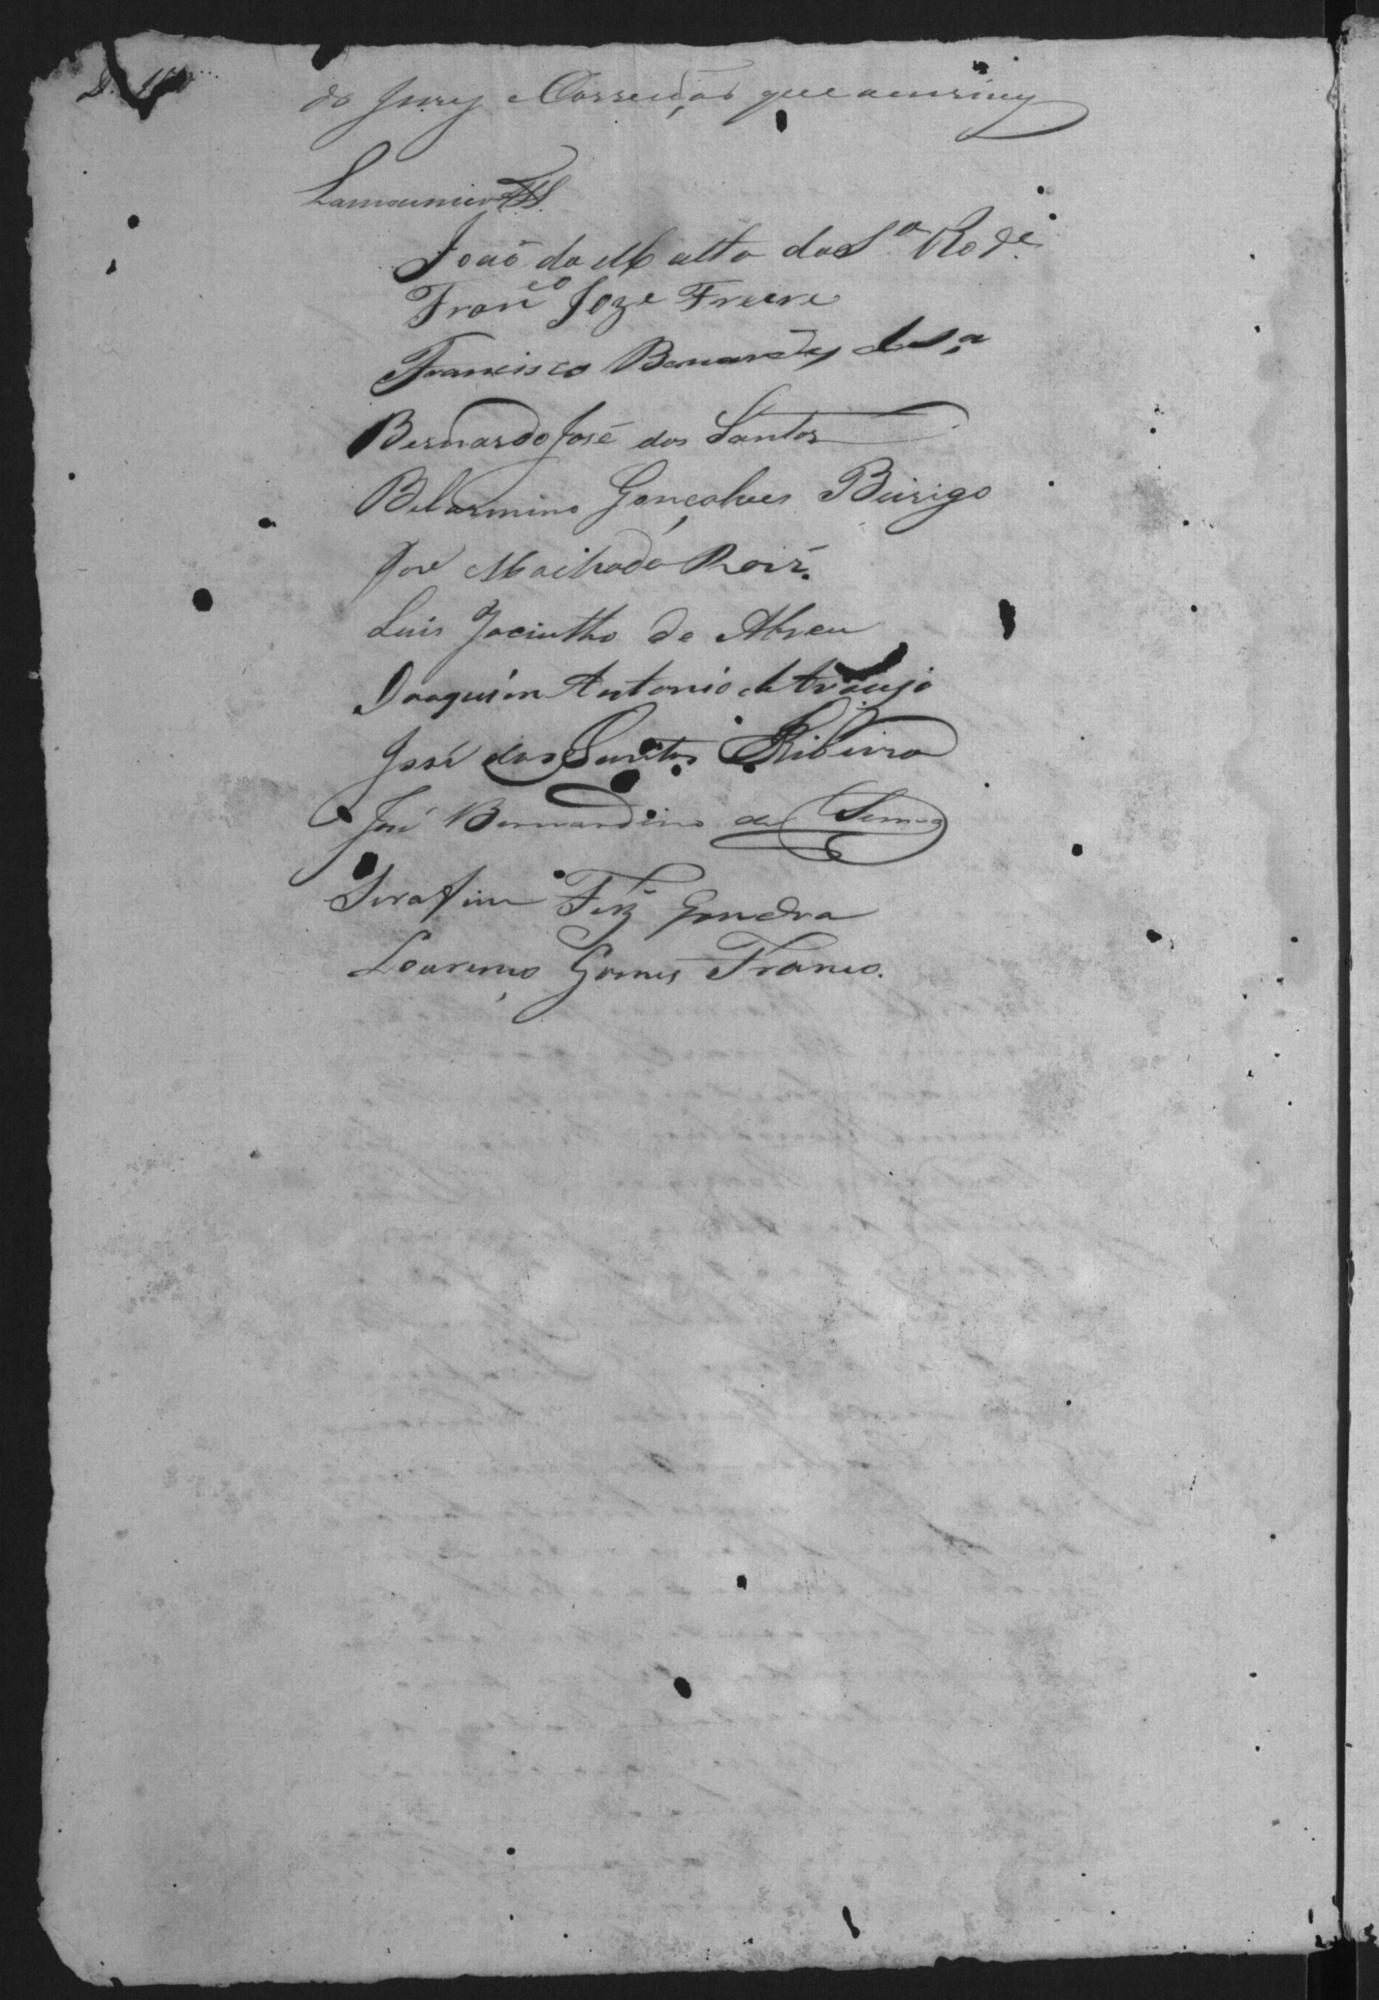 do Jury e Correição que acuziney
Lamounier
João da Matta da S.ª Rod.e
Franco Joze Freire
Francisco Bernardes da S.ª
Bernardo José dos Santos
Belarmino Gonçalves Búrigo
José Machado Roiz.
Luis Jacintho de Abreu
Joaquim Antonio de Araujo
José dos Santos Ribeiro
José Bernardino de Senna
Serafim Frz
Lourenço Gomes Franco.